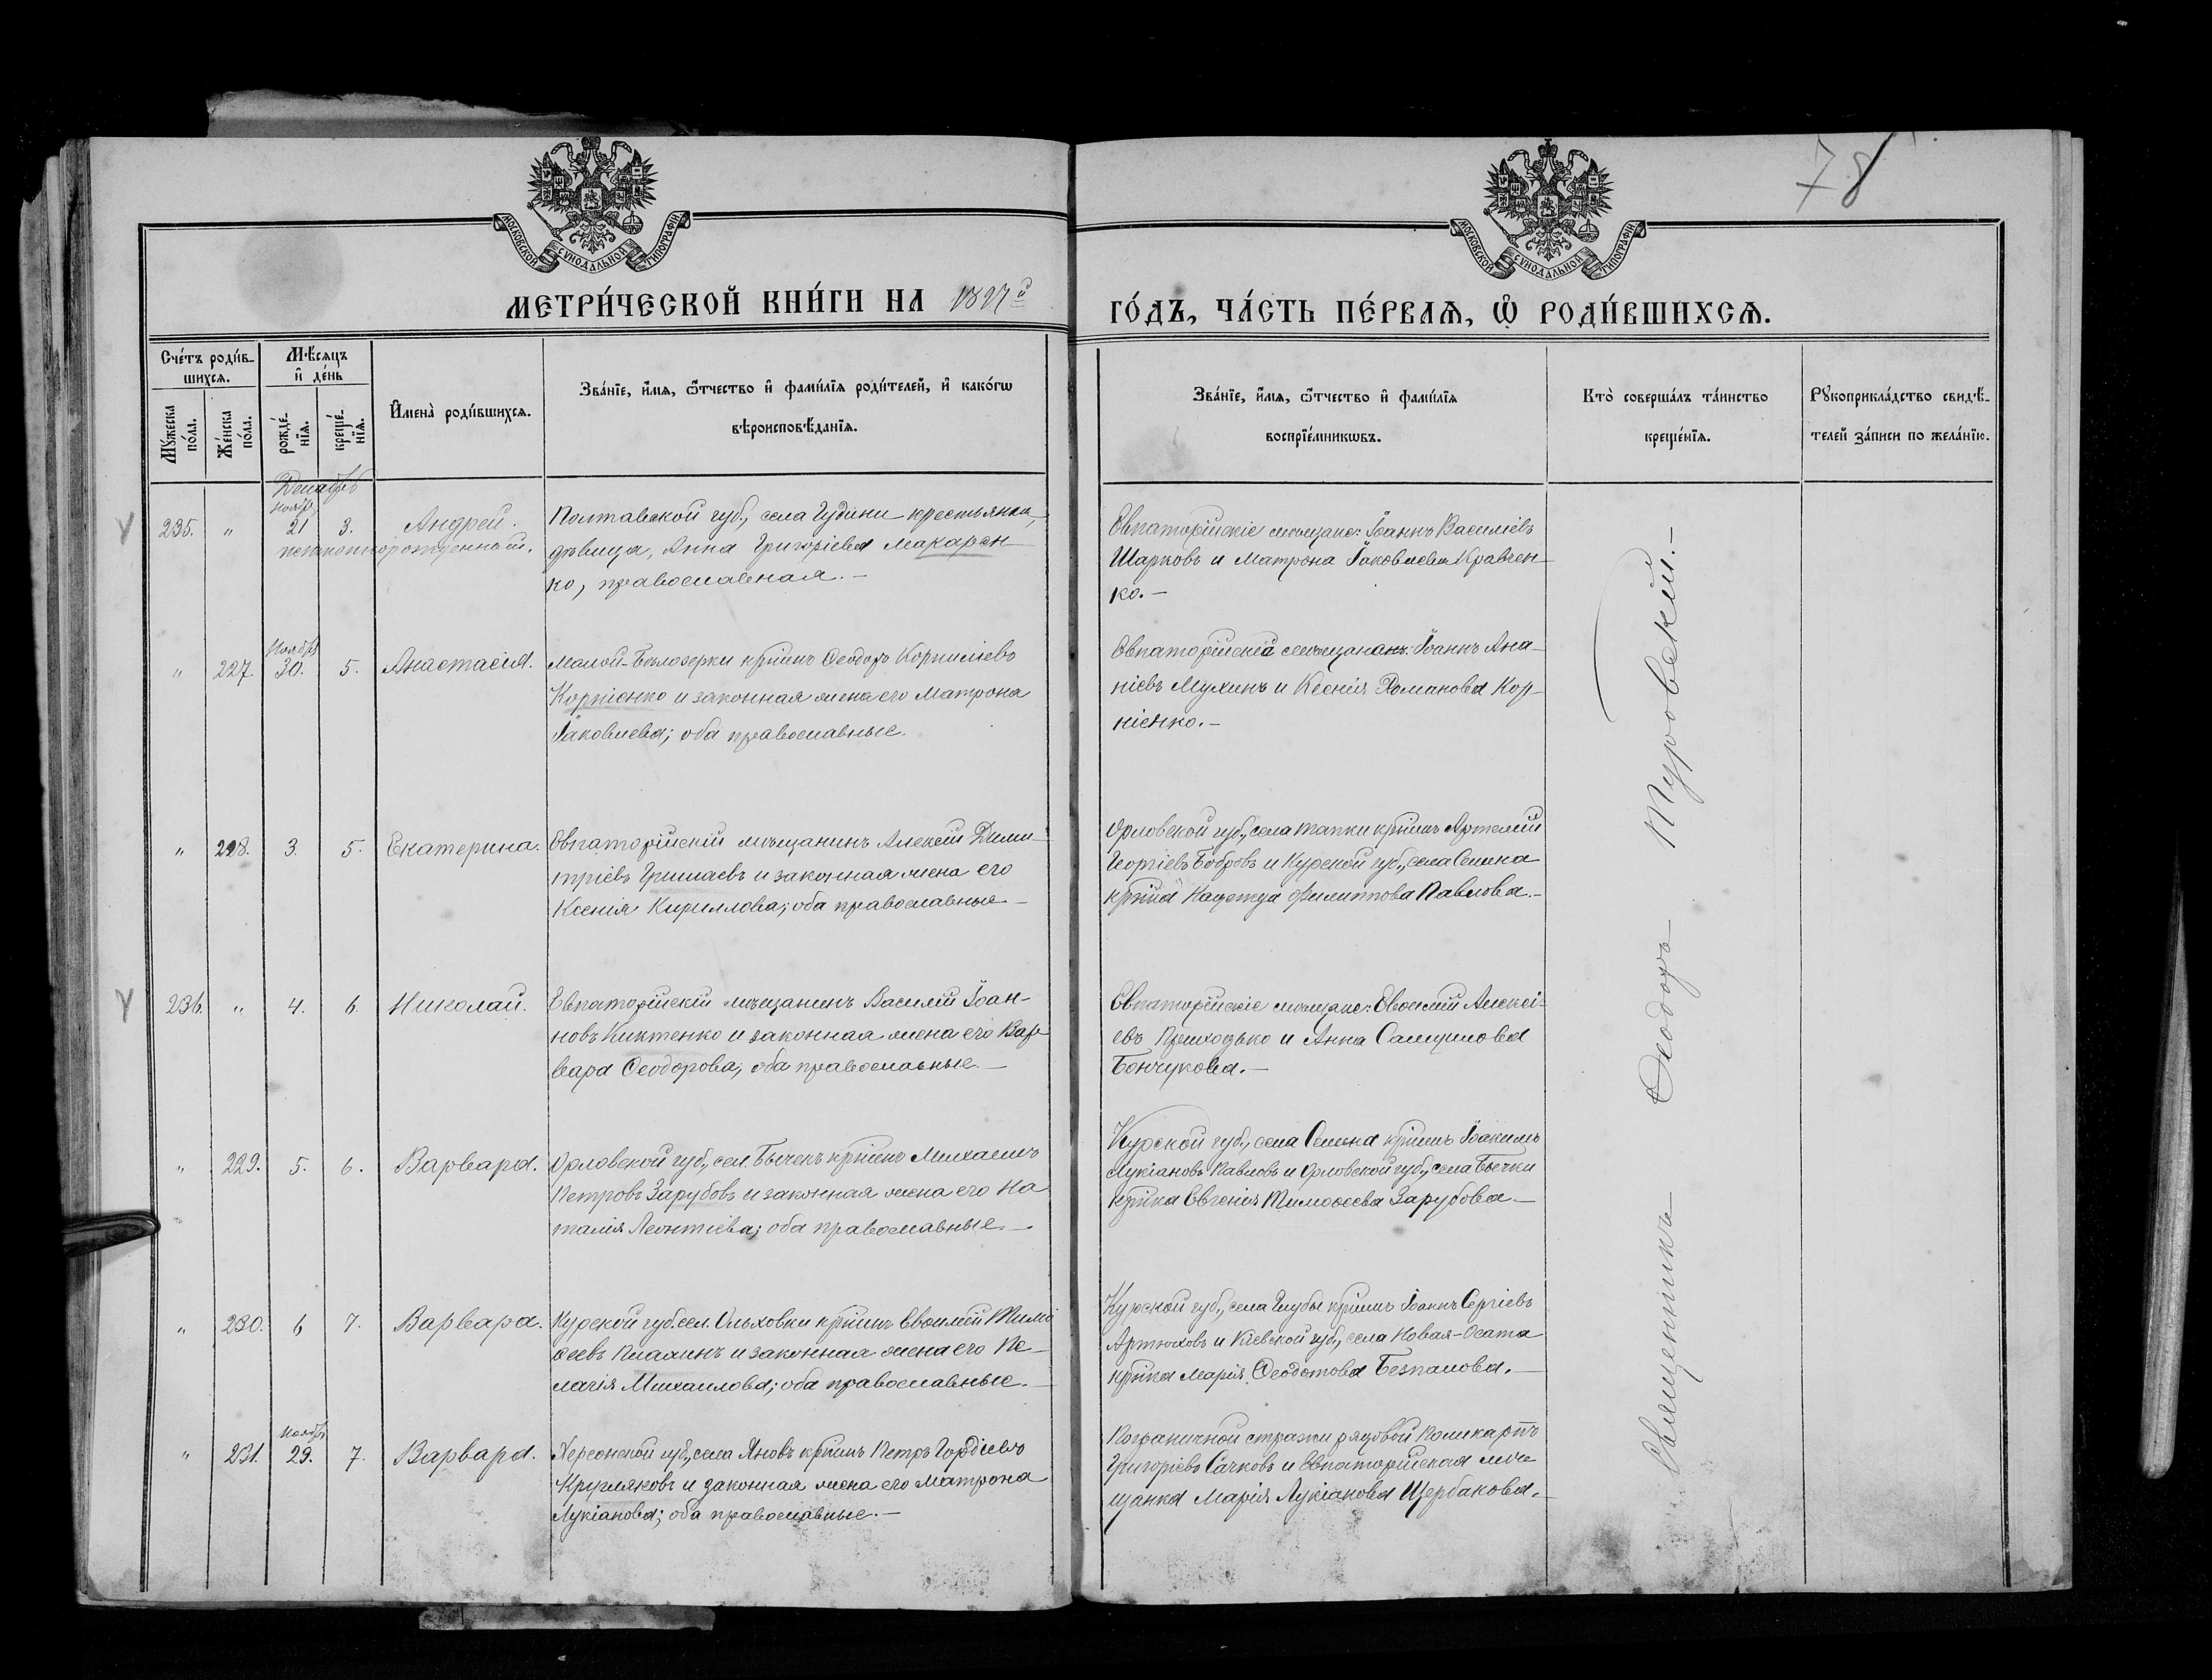 78
МОСКОВСКОЙ СѴНОДАЛЬНОЙ ТИПОГРАФІИ
МОСКОВСКОЙ СѴНОДАЛЬНОЙ ТИПОГРАФІИ
МЕТРИ́ЧЕСКОЙ КНИ́ГИ НА 1897й ГО́ДЪ, ЧА́СТЬ ПЕ́РВАѦ, Ѡ҆ РОДИ́ВШИХСѦ.
Сче́тъ роди́в-
шихсѧ.
Мꙋ́жеска по́ла.
Же́нска по́ла.
Мѣ́сѧцъ
и҆ де́нь
рожде́-
нїѧ.
креще́-
нїѧ.
И҆мена̀ роди́вшихсѧ.
Зва́нїе, и҆́мѧ, ѻ҆́тчество и҆ фами́лїѧ роди́телей, и҆ како́гѡ
вѣроисповѣ́данїѧ.
Зва́нїе, и҆́мѧ, ѻ҆́тчество и҆ фами́лїѧ
воспрїе́мникѡвъ.
Кто̀ соверша́лъ та́инство
креще́нїѧ.
Рꙋкоприкла́дство свидѣ́-
телей за́писи по жела́нїю.
Декабрь
Ноябр.
235. " 21 3. Андрей.
незаконнорожденный.
Полтавской губ., села крестьянка,
дѣвица, Анна Григоріева Макарен-
ко, православная.—
Евпаторійскіе мѣщане: Іоаннъ Василіевъ
Шарковъ и Матрона Іаковлева Кравчен-
ко.—
Ноября
" 227. 30. 5. Анастасія.
Малой-Бѣлозерки кр҃нинъ Ѳеодоръ Корниліевъ
Корніенко и законная жена его Матрона
Іаковлева; оба православные.
Евпаторійскій мѣщанинъ: Іоаннъ Ана-
ніевъ Мухинъ и Ксенія Романова Кор-
ніенко.—
" 228. 3. 5. Екатерина.
Евпаторійскій мѣщанинъ Алексій Дими-
тріевъ Гришаевъ и законная жена его
Ксенія Кириллова; оба православные—
Орловской губ., села Тапки кр҃нинъ Артемій
Георгіевъ Бобровъ и Курской губ., села
кр҃нка Филиппова Павлова.—
236. " 4. 6. Николай.
Евпаторійскій мѣщанинъ Василій Іоан-
новъ Киктенко и законная жена его Вар-
вара Ѳеодорова; оба православные.—
Евпаторійскіе мѣщане: Евѳимій Алексі-
евъ Приходько и Анна Самуилова
Бончукова.—
" 229. 5. 6. Варвара.
Орловской губ., сел. Бычекъ кр҃нинъ Михаилъ
Петровъ Зарубовъ и законная жена его На
талія Леонтіева; оба православные.—
Курской губ., села кр҃нинъ Іоакимъ
Лукіановъ Павловъ и Орловской губ., села Бычки
кр҃нка Евгенія Тимоѳеева Зарубова.—
" 230. 6 7. Варвара.
Курской губ. сел. Ольховки кр҃нинъ Евѳимій Тимо
ѳеевъ и законная жена его Пе-
лагія Михаилова; оба православные.—
Курской губ., села кр҃нинъ Іоаннъ Сергіевъ
Артюховъ и Кіевской губ., села Новая-Осата
кр҃нка Марія Ѳеодотова Безпалова.—
Ноября
" 231. 29. 7. Варвара.
Херсонской губ., села Яновъ кр҃нинъ Петръ Гордіевъ
Кругляковъ и законная жена его Матрона
Лукіанова; оба православные.—
Пограничной стражи рядовой Поликарпъ
Григоріевъ Сачковъ и Евпаторійская мѣ-
щанка Марія Лукіанова Щербакова.
Священникъ— Ѳеодоръ— Туровскій.—